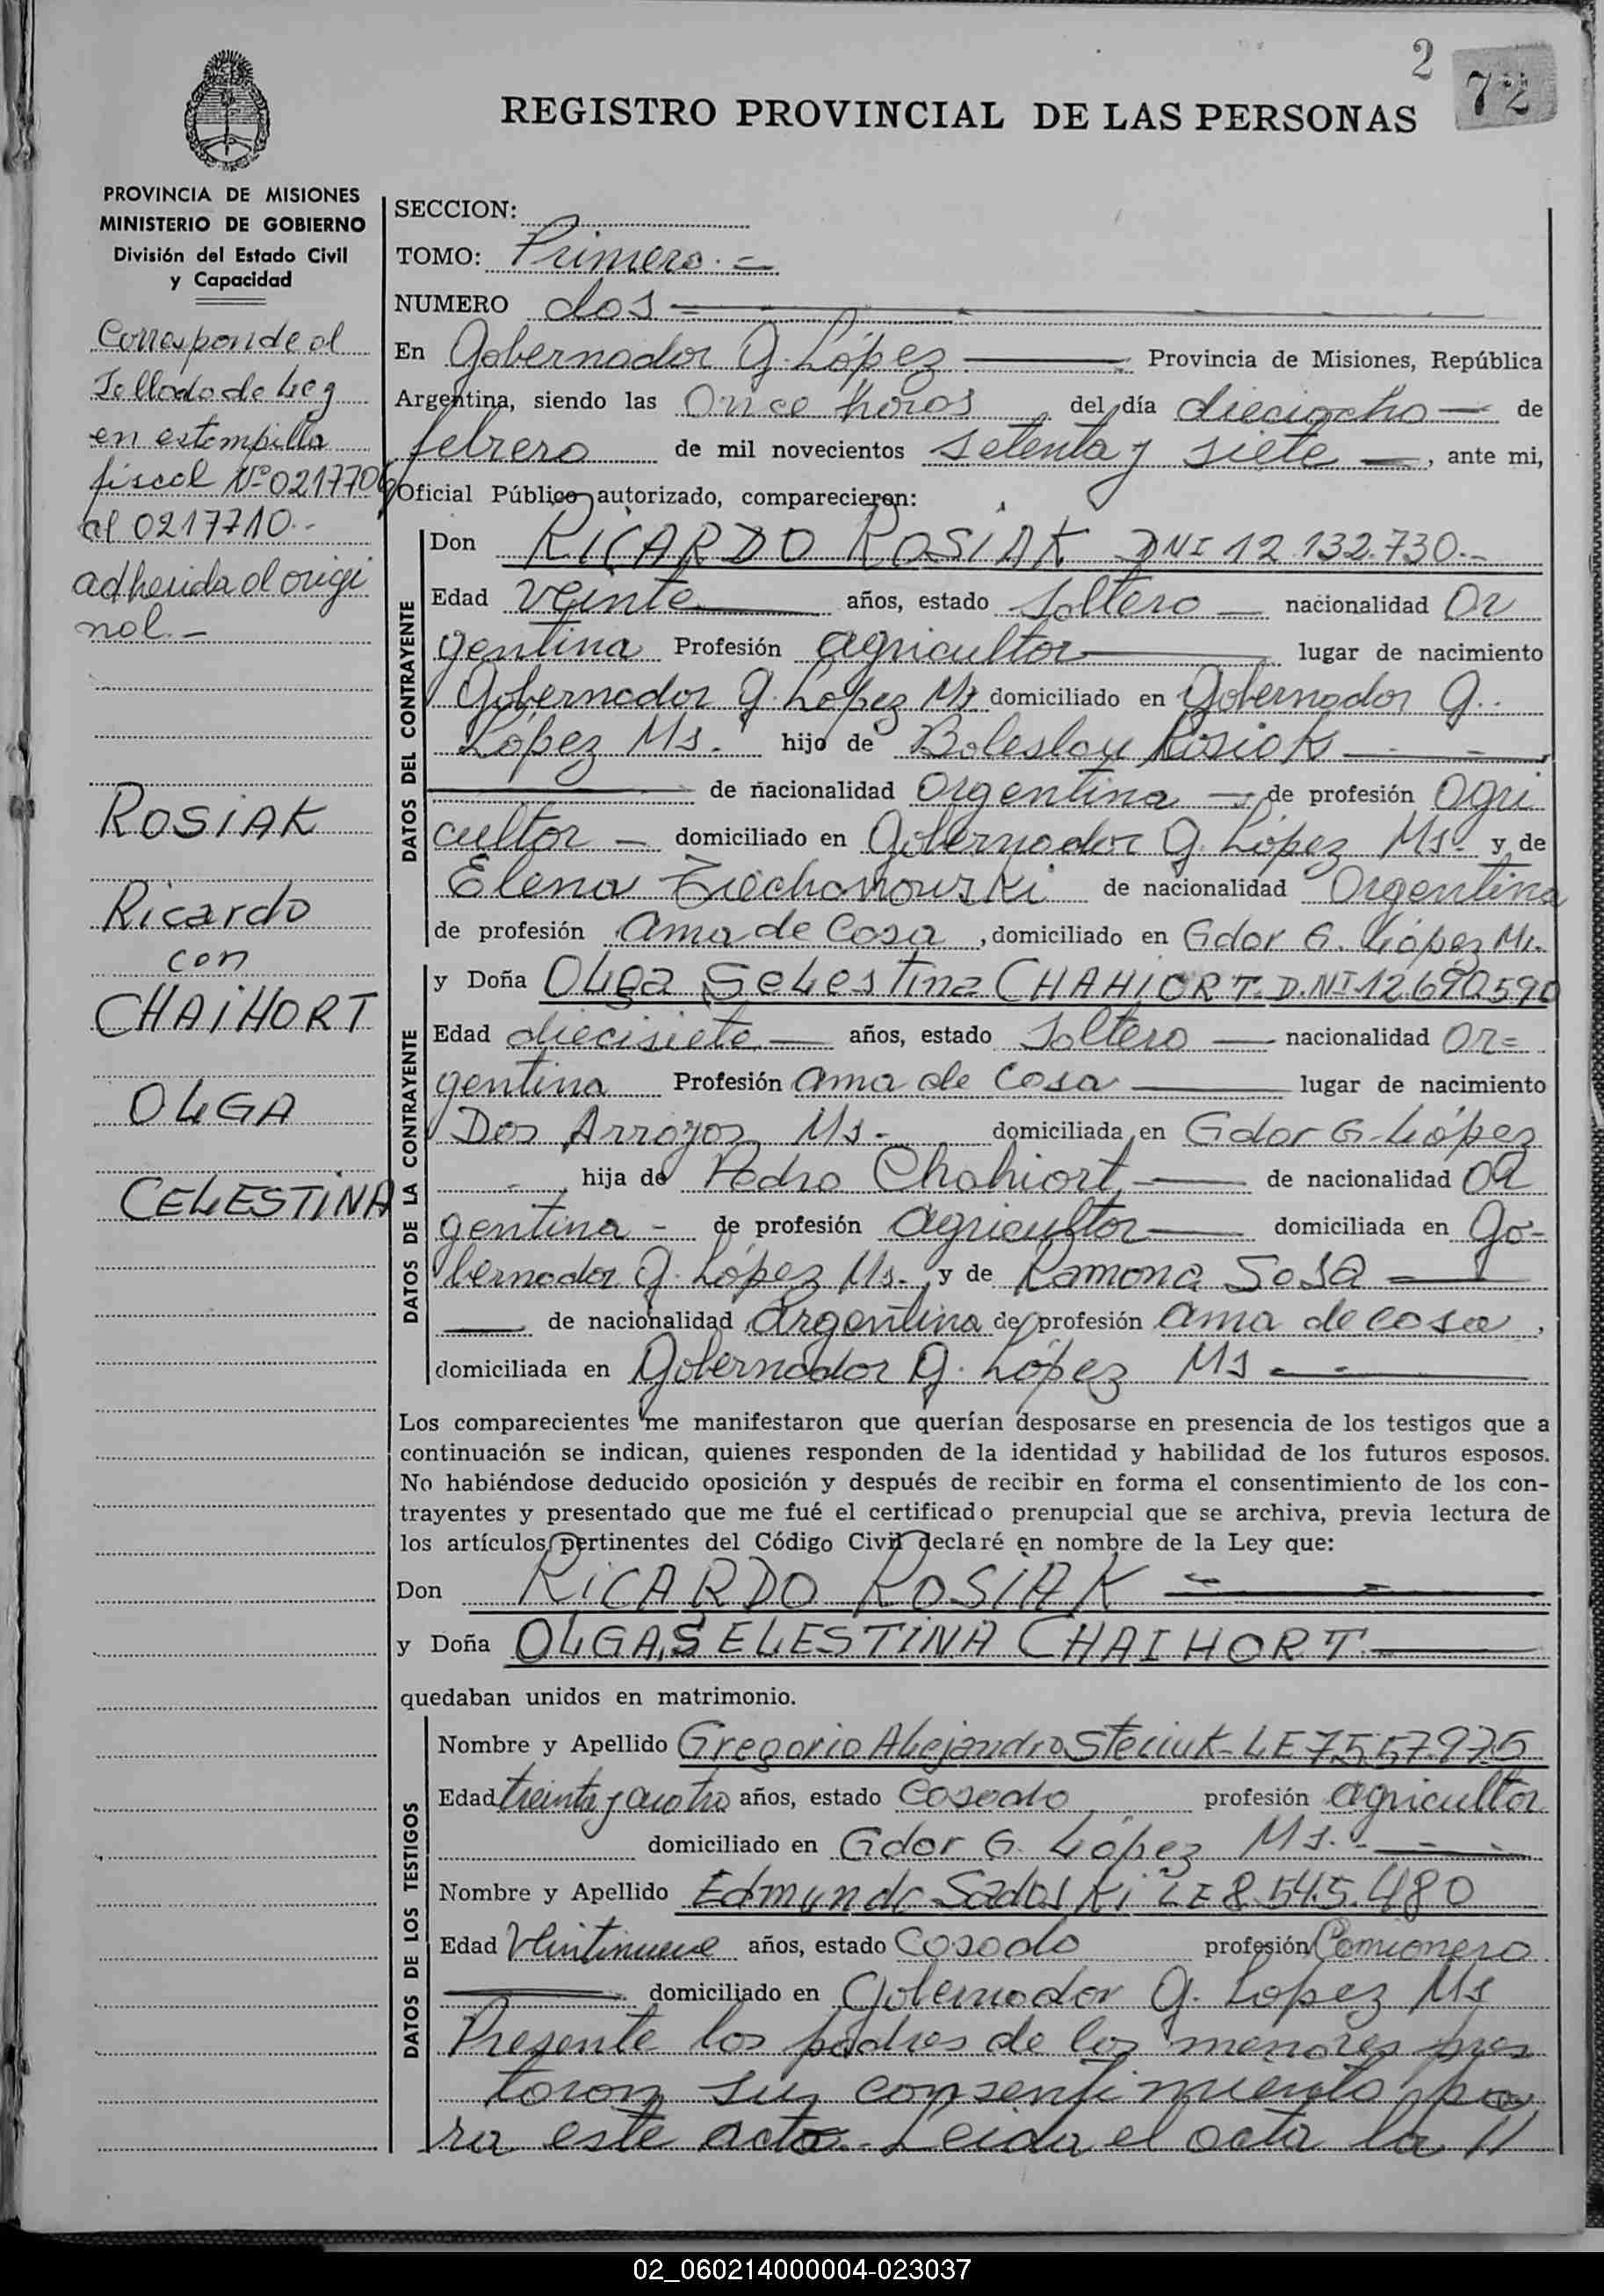 2
72
REGISTRO PROVINCIAL DE LAS PERSONAS
PROVINCIA DE MISIONES
MINISTERIO DE GOBIERNO
División del Estado Civil
y Capacidad
Corresponde al
Sellado de Ley
en estampilla
fiscal Nº 0217706
al 0217710.-
adherida al origi
nal.-
ROSIAK
Ricardo
con
CHAIHORT
OLGA
CELESTINA
SECCION:
TOMO: Primero.=
NUMERO dos
En Gobernador G. López Provincia de Misiones, República
Argentina, siendo las Once horas, del día dieciocho — de
febrero de mil novecientos setenta y siete —, ante mi,
Oficial Público autorizado, comparecieron:
DATOS DEL CONTRAYENTE
Don RICARDO ROSIAK DNI 12.132.730.-
Edad veinte años, estado soltero — nacionalidad ar
gentina Profesión agricultor lugar de nacimiento
Gobernador G. López Ms domiciliado en Gobernador G.
López Ms. hijo de Boleslou Rosiak
de nacionalidad Argentina — de profesión agri
cultor — domiciliado en Gobernador G. López Ms. y de
Elena de nacionalidad Argentina
de profesión ama de Casa, domiciliado en Gdor G. López Ms.
DATOS DE LA CONTRAYENTE
y Doña OLga SeLesTina CHAHIORT. D.NI 12.690.590
Edad diecisiete — años, estado Soltera — nacionalidad ar=
gentina Profesión ama de Casa lugar de nacimiento
Dos Arroyos Ms.- domiciliada en Gdor G. López
hija de Pedro Chahiort, — de nacionalidad ar
gentina - de profesión agricultor — domiciliada en Go-
bernador G. López Ms. y de Ramona Sosa
— de nacionalidad Argentina de profesión ama de casa,
domiciliada en Gobernador G. López Ms
Los comparecientes me manifestaron que querían desposarse en presencia de los testigos que a
continuación se indican, quienes responden de la identidad y habilidad de los futuros esposos.
No habiéndose deducido oposición y después de recibir en forma el consentimiento de los con-
trayentes y presentado que me fué el certificado prenupcial que se archiva, previa lectura de
los artículos pertinentes del Código Civil declaré en nombre de la Ley que:
Don RICARDO ROSIAK
y Doña OLGA, SELESTINA CHAIHORT.
quedaban unidos en matrimonio.
DATOS DE LOS TESTIGOS
Nombre y Apellido Gregorio ALejandro Steciuk - LE 7.557.975
Edad treinta y cuatro años, estado Casado profesión agricultor
domiciliado en Gdor G. López Ms.-
Nombre y Apellido Edmundo Sadoski LE 8.545.480
Edad Veintinueve años, estado Casado profesión Camionero
domiciliado en Gobernador G. López Ms
Presente los padres de los menores pres
taron su consentimiento pa
ra este acto.- Leida el acta la //
02_060214000004-023037